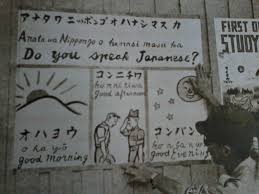 アナタワニッポンゴオハナシマスカ
Anata wa Nippongo o hanasi masu ka
Do you speak Japanese?
コンニチワ
kon ni ti wa
good afternoon
オハヨウ
o ha yō
good morning
コンバン
kon ban wa
good evening
FIRST
STUDY